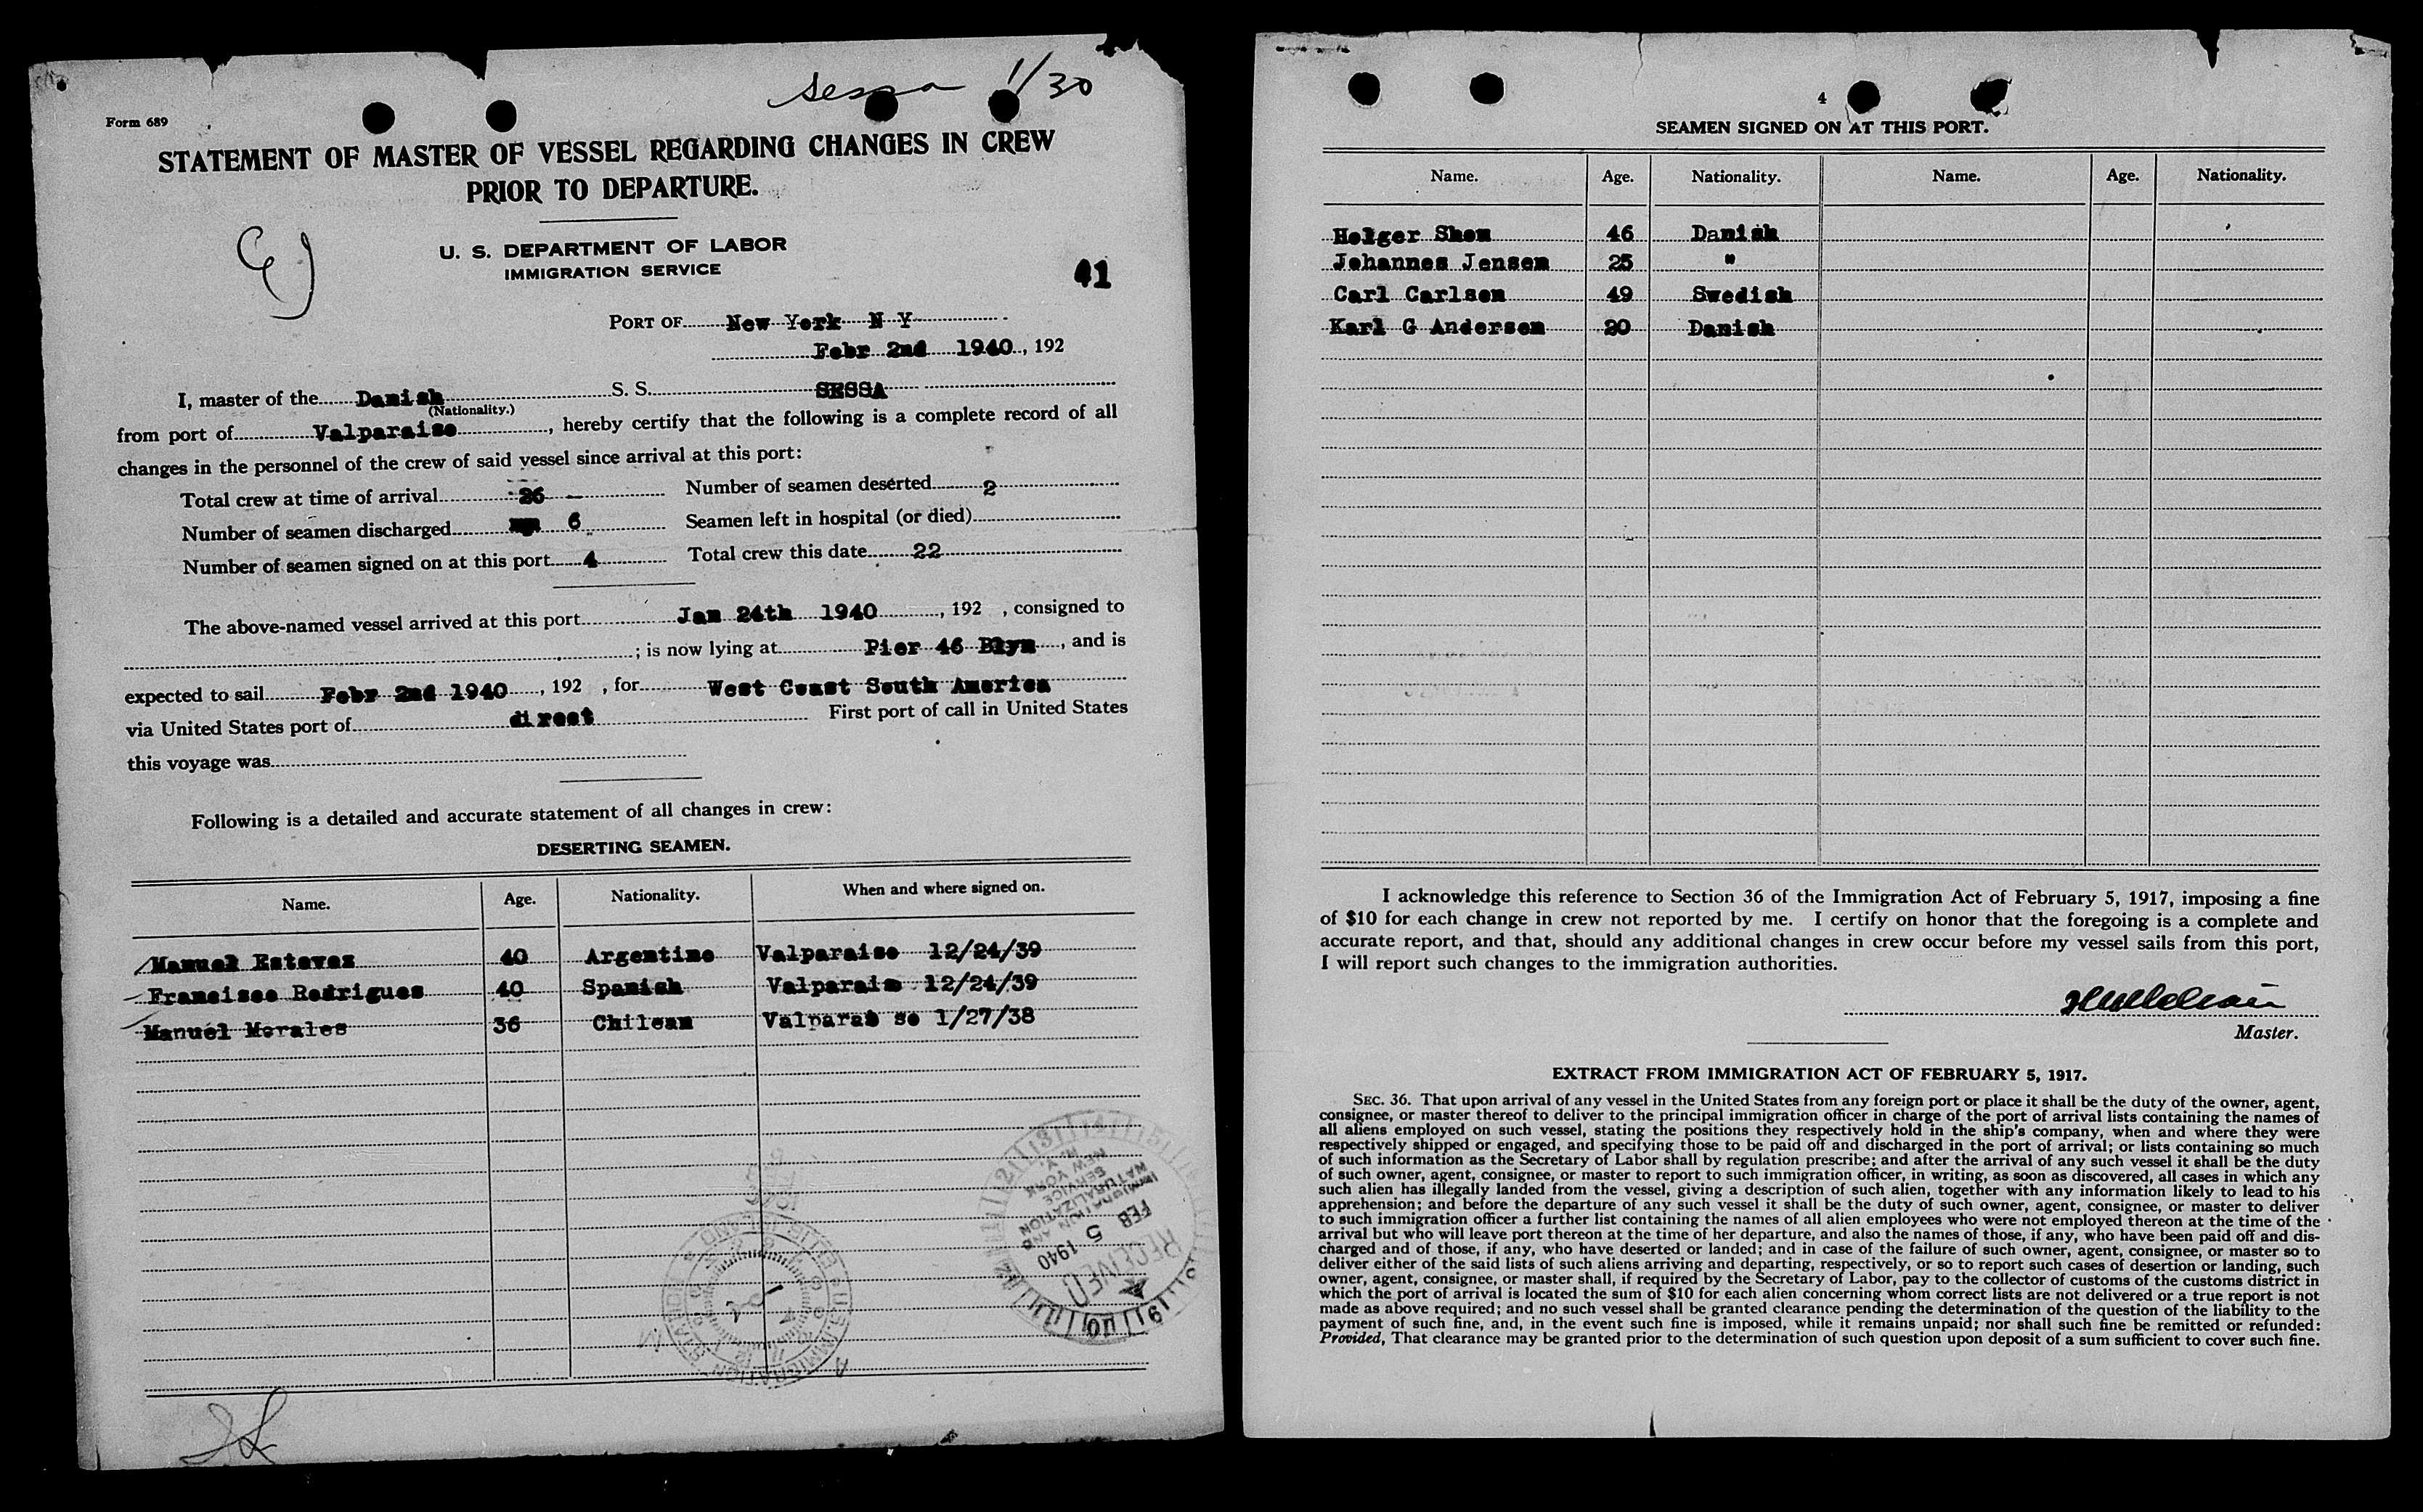 Sessa 1/30
Form 689
STATEMENT OF MASTER OF VESSEL REGARDING CHANGES IN CREW
PRIOR TO DEPARTURE.
U. S. DEPARTMENT OF LABOR
IMMIGRATION SERVICE
41
PORT OF New York N Y
Febr 2nd 1940, 192
I, master of the Danish S. S. SESSA
(Nationality.)
from port of Valparaiso, hereby certify that the following is a complete record of all
changes in the personnel of the crew of said vessel since arrival at this port:
Total crew at time of arrival 26 Number of seamen deserted 2
Number of seamen discharged 6 Seamen left in hospital (or died)
Number of seamen signed on at this port 4 Total crew this date 22
The above-named vessel arrived at this port Jan 24th 1940, 192 , consigned to
; is now lying at Pier 46 Blyn, and is
expected to sail Febr 2nd 1940, 192 , for West Coast South America
via United States port of direct First port of call in United States
this voyage was
Following is a detailed and accurate statement of all changes in crew:
DESERTING SEAMEN.
Name. Age. Nationality. When and where signed on.
Manuel Estevez 40 Argentine Valparaiso 12/24/39
Francisco Rodrigues 40 Spanish Valparais 12/24/39
Manuel Morales 36 Chilean Valparai so 1/27/38
IMMIGRATION AND
NATURALIZATION
SERVICE
NEW YORK
N. Y.
FEB 5 1940
RECEIVED
4
SEAMEN SIGNED ON AT THIS PORT.
Name. Age. Nationality. Name. Age. Nationality.
Holger Shou 46 Danish
Johannes Jensen 25 "
Carl Carlsen 49 Swedish
Karl G Andersen 20 Danish
I acknowledge this reference to Section 36 of the Immigration Act of February 5, 1917, imposing a fine
of $10 for each change in crew not reported by me. I certify on honor that the foregoing is a complete and
accurate report, and that, should any additional changes in crew occur before my vessel sails from this port,
I will report such changes to the immigration authorities.
Master.
EXTRACT FROM IMMIGRATION ACT OF FEBRUARY 5, 1917.
SEC. 36. That upon arrival of any vessel in the United States from any foreign port or place it shall be the duty of the owner, agent,
consignee, or master thereof to deliver to the principal immigration officer in charge of the port of arrival lists containing the names of
all aliens employed on such vessel, stating the positions they respectively hold in the ship's company, when and where they were
respectively shipped or engaged, and specifying those to be paid off and discharged in the port of arrival; or lists containing so much
of such information as the Secretary of Labor shall by regulation prescribe; and after the arrival of any such vessel it shall be the duty
of such owner, agent, consignee, or master to report to such immigration officer, in writing, as soon as discovered, all cases in which any
such alien has illegally landed from the vessel, giving a description of such alien, together with any information likely to lead to his
apprehension; and before the departure of any such vessel it shall be the duty of such owner, agent, consignee, or master to deliver
to such immigration officer a further list containing the names of all alien employees who were not employed thereon at the time of the
arrival but who will leave port thereon at the time of her departure, and also the names of those, if any, who have been paid off and dis-
charged and of those, if any, who have deserted or landed; and in case of the failure of such owner, agent, consignee, or master so to
deliver either of the said lists of such aliens arriving and departing, respectively, or so to report such cases of desertion or landing, such
owner, agent, consignee, or master shall, if required by the Secretary of Labor, pay to the collector of customs of the customs district in
which the port of arrival is located the sum of $10 for each alien concerning whom correct lists are not delivered or a true report is not
made as above required; and no such vessel shall be granted clearance pending the determination of the question of the liability to the
payment of such fine, and, in the event such fine is imposed, while it remains unpaid; nor shall such fine be remitted or refunded:
Provided, That clearance may be granted prior to the determination of such question upon deposit of a sum sufficient to cover such fine.